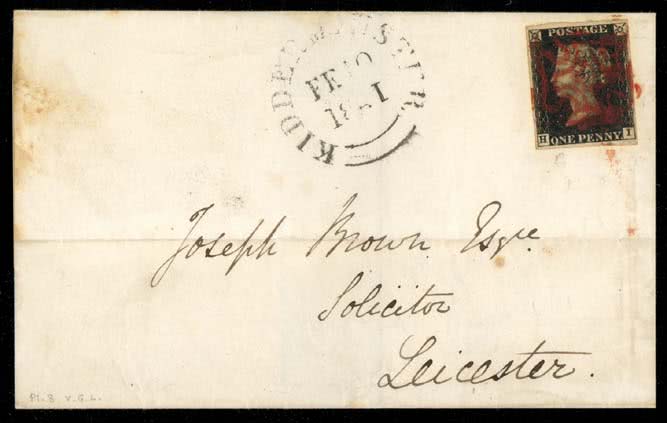 KIDDERMINSTER
FE 10
1841
POSTAGE
H I
ONE PENNY
Joseph Brown Esqre.
Solicitor
Leicester.
Pl. 8 V.G.L.